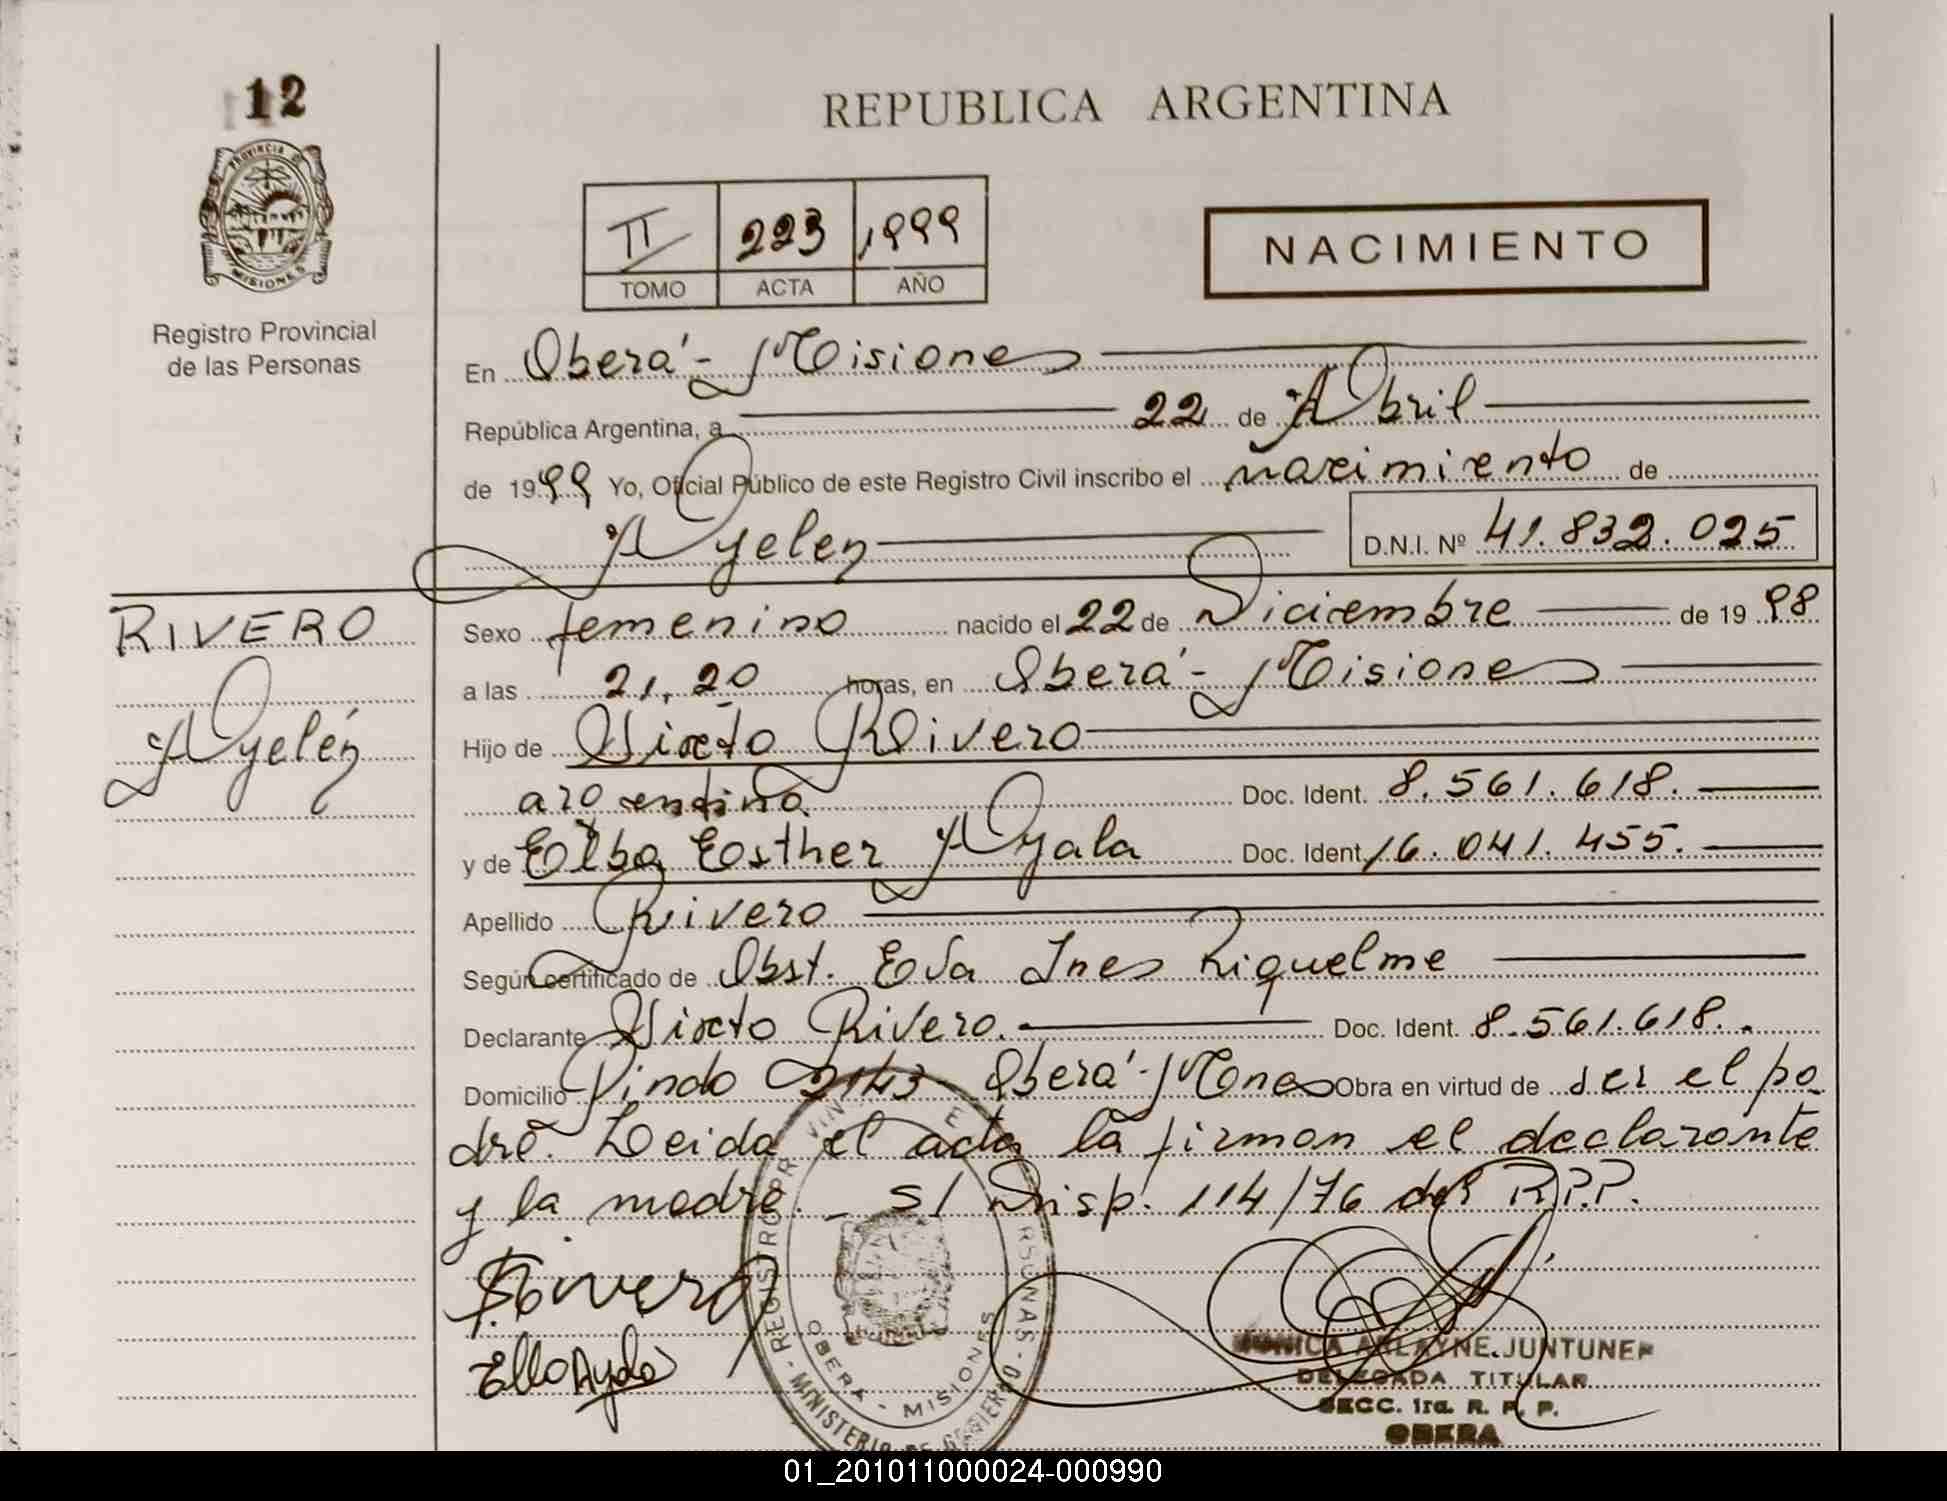 12
PROVINCIA DE
MISIONES
Registro Provincial
de las Personas
REPUBLICA ARGENTINA
II 223 1999
TOMO ACTA AÑO
NACIMIENTO
En Oberá - Misiones
República Argentina, a 22 de Abril
de 1999 Yo, Oficial Público de este Registro Civil inscribo el nacimiento de
Ayelen D.N.I. Nº 41.832.025
RIVERO
Ayelén
Sexo femenino nacido el 22 de Diciembre de 1998
a las 21,20 horas, en Oberá - Misiones
Hijo de Sixto Rivero
argentino Doc. Ident. 8.561.618.
y de Elba Esther Ayala Doc. Ident. 16.041.455.
Apellido Rivero
Según certificado de Obst. Eva Ines Riquelme
Declarante Sixto Rivero. Doc. Ident. 8.561.618.
Domicilio Pindo 2143 - Oberá - Mnes Obra en virtud de ser el pa-
dre. Leida el acta la firman el declarante
y la madre. - S/ Disp. 114/76 del R.P.P.
S. Rivero
REGISTRO PROVINCIAL DE PERSONAS
OBERA - MISIONES
MINISTERIO DE GOBIERNO
MONICA ARLAYNE JUNTUNEN
DELEGADA TITULAR
SECC. 1ra. R. P. P.
OBERA
01_201011000024-000990